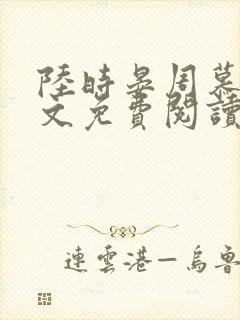 陸時晏周慕
文免費閱讀
連雲港—烏魯